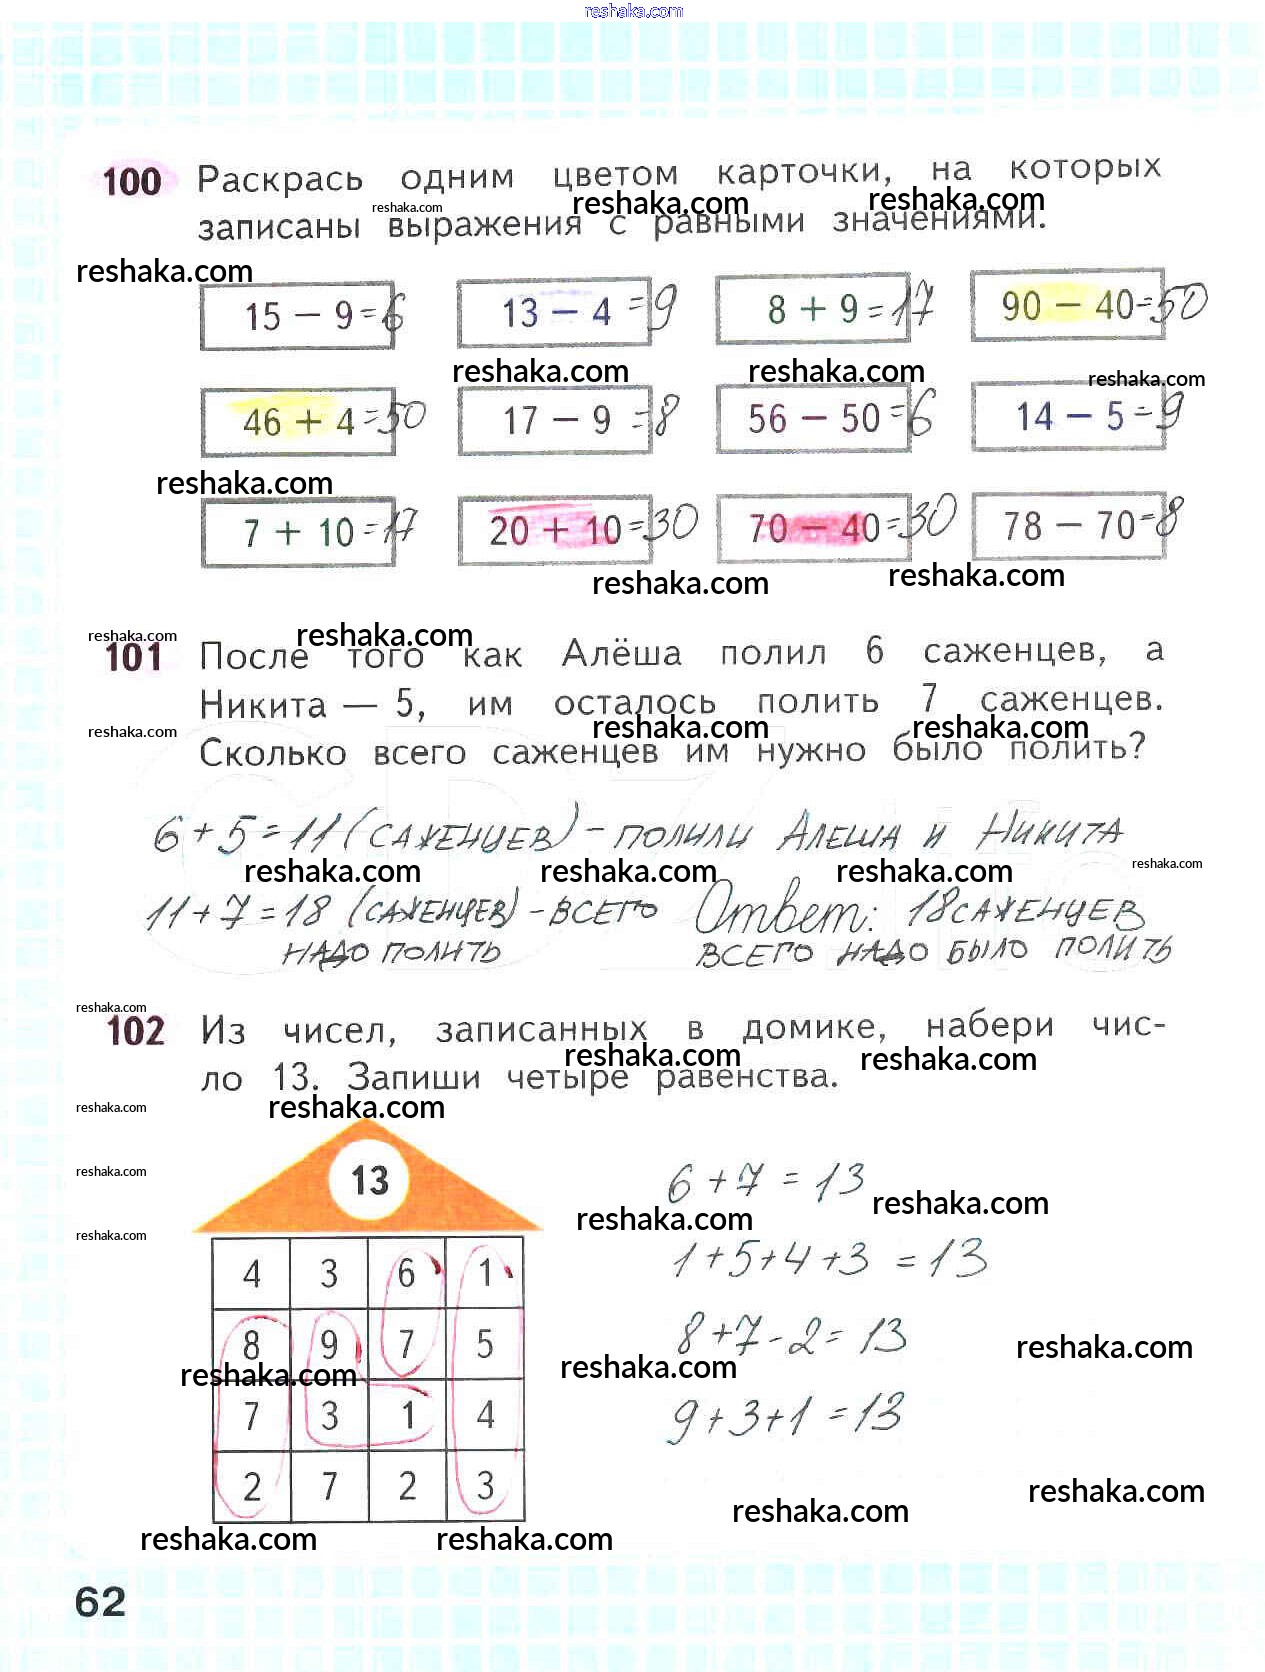 reshaka.com
100 Раскрась одним цветом карточки, на которых
reshaka.com reshaka.com reshaka.com
записаны выражения с равными значениями.
reshaka.com
15 − 9 = 6 13 − 4 = 9 8 + 9 = 17 90 − 40 = 50
reshaka.com reshaka.com reshaka.com
46 + 4 = 50 17 − 9 = 8 56 − 50 = 6 14 − 5 = 9
reshaka.com
7 + 10 = 17 20 + 10 = 30 70 − 40 = 30 78 − 70 = 8
reshaka.com reshaka.com
reshaka.com reshaka.com
101 После того как Алёша полил 6 саженцев, а
Никита — 5, им осталось полить 7 саженцев.
reshaka.com reshaka.com reshaka.com
Сколько всего саженцев им нужно было полить?
6 + 5 = 11 (САЖЕНЦЕВ) - ПОЛИЛИ АЛЕША И НИКИТА
reshaka.com reshaka.com reshaka.com reshaka.com
11 + 7 = 18 (САЖЕНЦЕВ) - ВСЕГО Ответ: 18 САЖЕНЦЕВ
НАДО ПОЛИТЬ ВСЕГО НАДО БЫЛО ПОЛИТЬ
reshaka.com
102 Из чисел, записанных в домике, набери чис-
reshaka.com reshaka.com
ло 13. Запиши четыре равенства.
reshaka.com reshaka.com
13
reshaka.com
6 + 7 = 13
reshaka.com reshaka.com
reshaka.com
4 3 6 1
1 + 5 + 4 + 3 = 13
8 9 7 5
8 + 7 - 2 = 13
reshaka.com reshaka.com reshaka.com
7 3 1 4
9 + 3 + 1 = 13
2 7 2 3
reshaka.com reshaka.com
reshaka.com reshaka.com
62